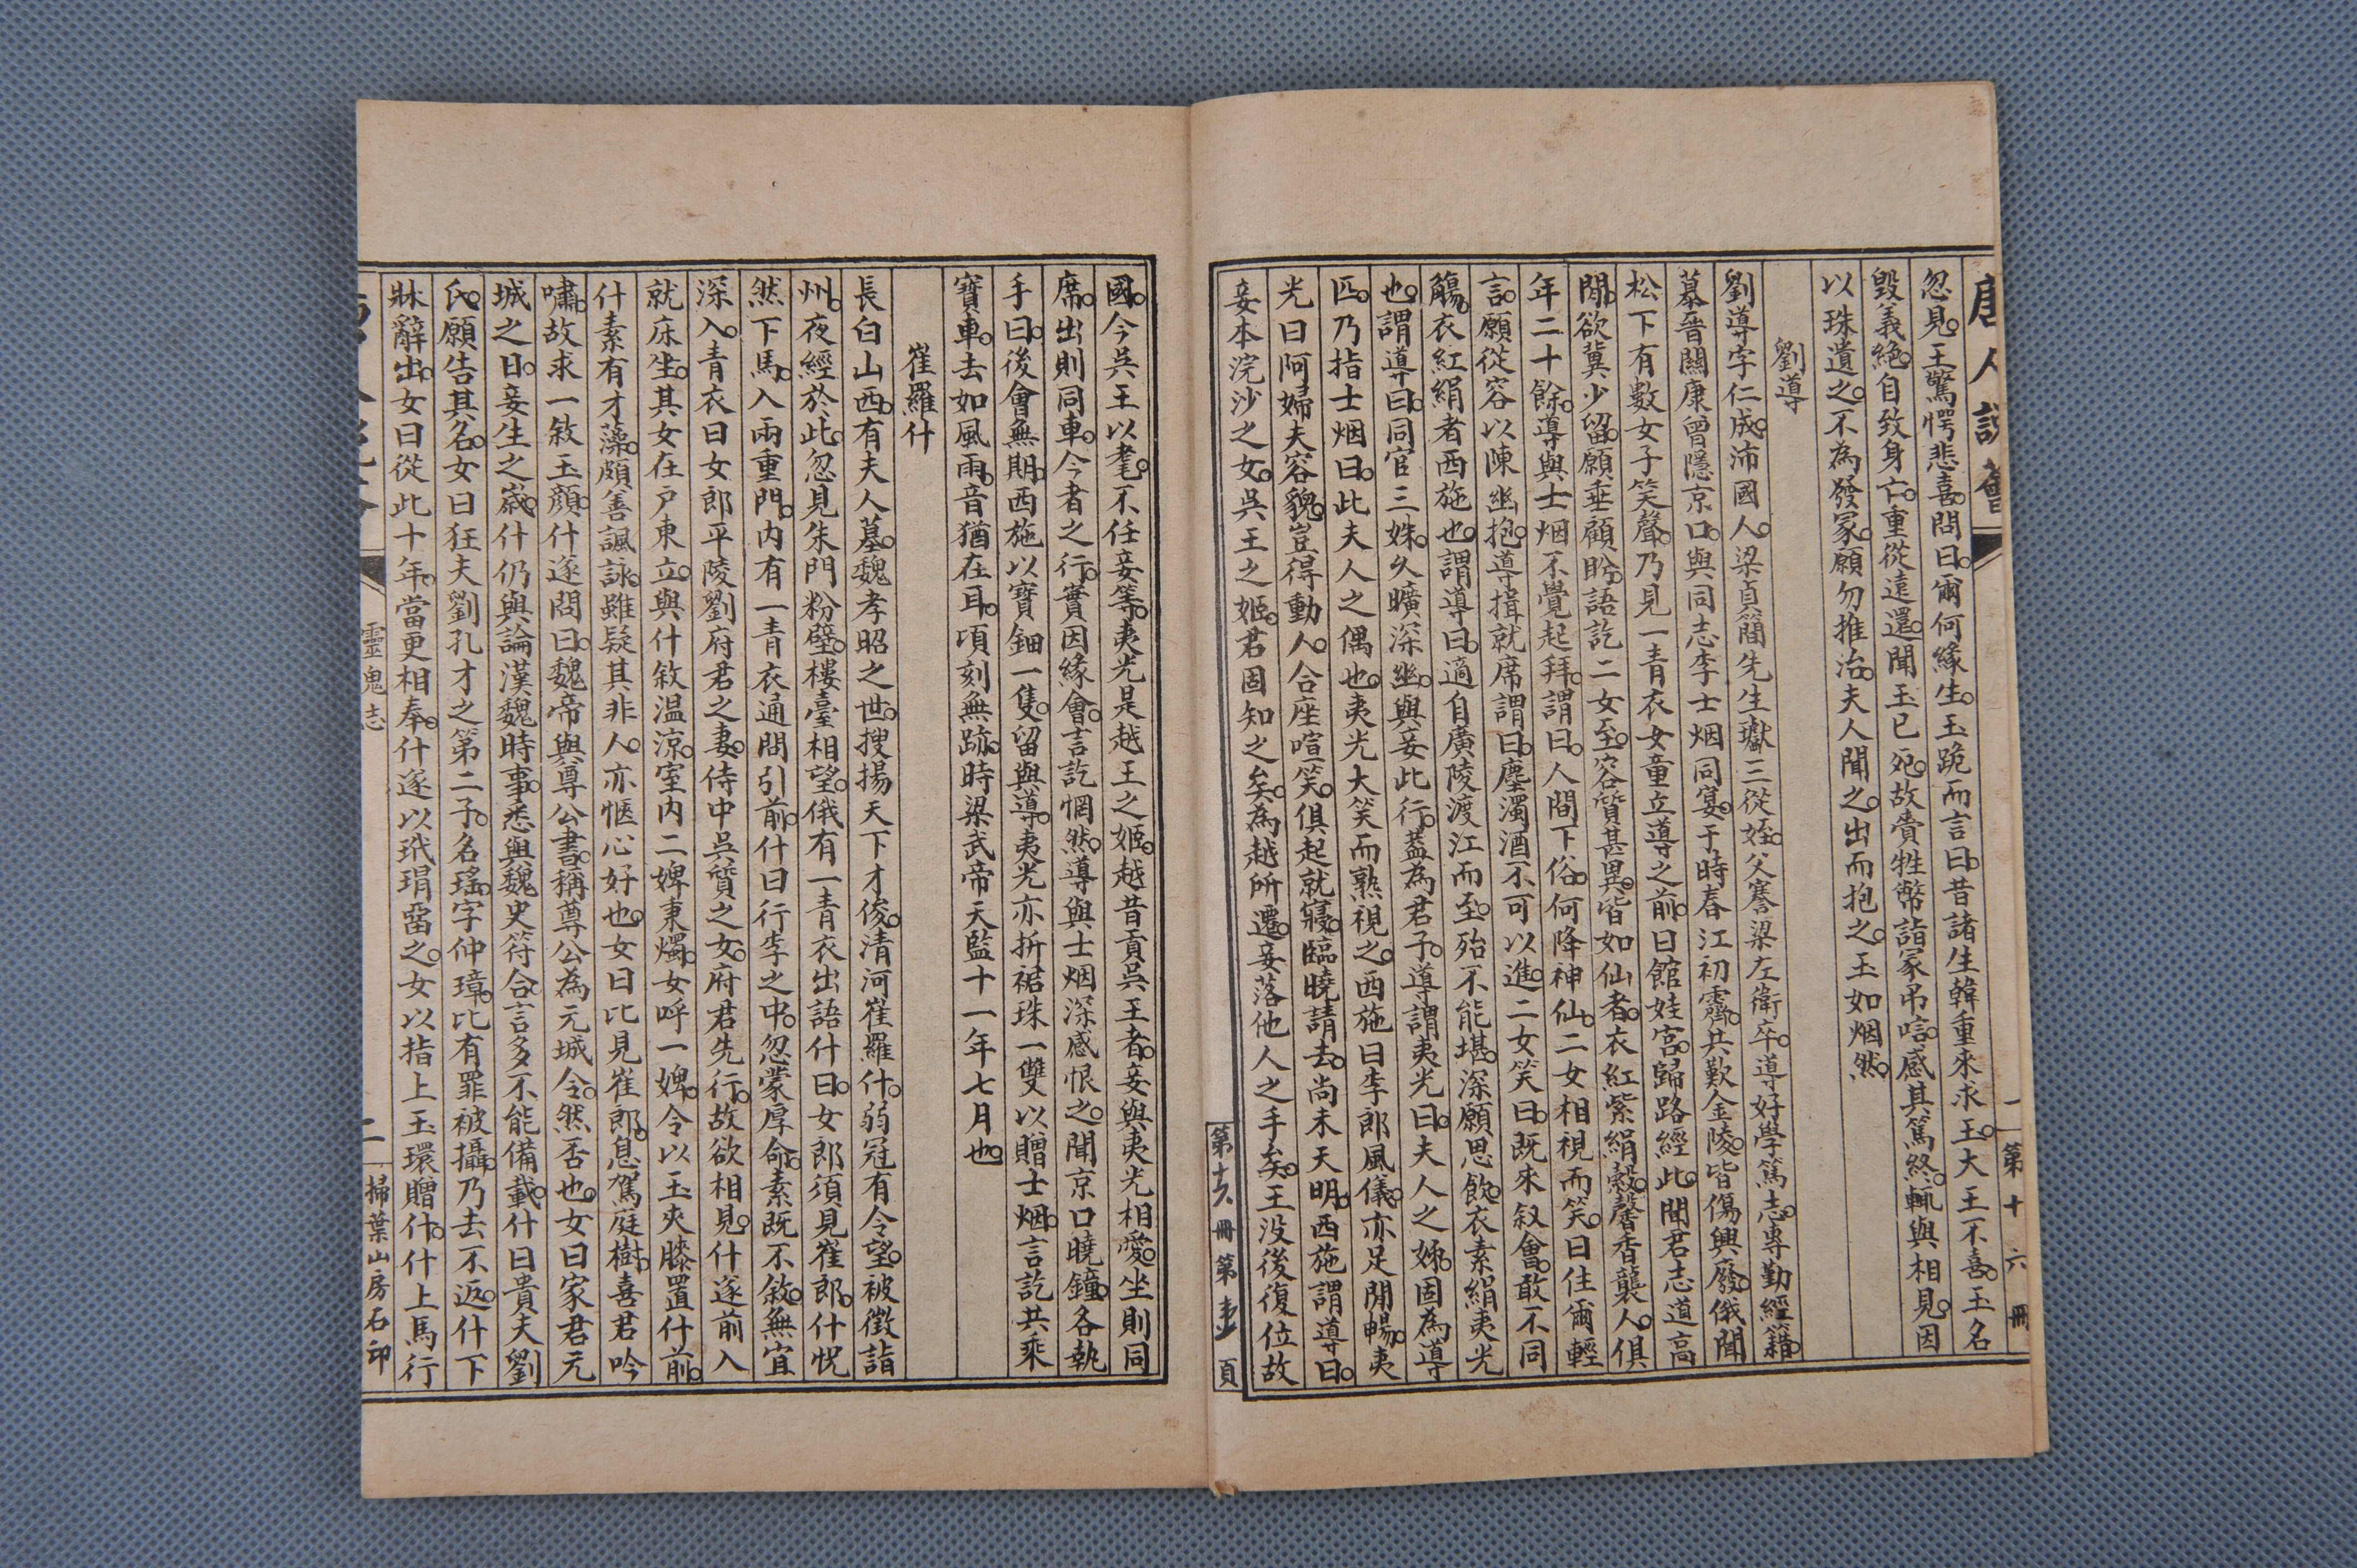 唐人說薈
一
第十六冊
忽見。玉驚愕悲喜。問曰。爾何緣生。玉跪而言曰。昔諸生韓重來求玉。大王不喜。玉名
毀義絶。自致身亡。重從遠還。聞玉已死。故賫牲幣詣冢吊唁。感其篤終。輒與相見。因
以珠遺之。不為發冢。願勿推治。夫人聞之。出而抱之。玉如烟然。
劉導
劉導字仁成。沛國人。梁貞簡先生瓛三從姪。父謇梁左衛卒。導好學篤志。專勤經籍。
慕晉關康曾隱京口。與同志李士烟同宴。于時春江初霽。共歎金陵。皆傷興廢。俄聞
松下有數女子笑聲。乃見一青衣女童立導之前。曰館娃宮。歸路經此。聞君志道高
閒。欲冀少留。願垂顧盼。語訖二女至。容質甚異。皆如仙者。衣紅紫絹縠。馨香襲人。俱
年二十餘。導與士烟不覺起拜。謂曰。人間下俗。何降神仙。二女相視而笑。曰住爾輕
言。願從容以陳幽抱。導揖就席謂曰。塵濁酒不可以進。二女笑曰。既來叙會。敢不同
觴。衣紅絹者西施也。謂導曰。適自廣陵渡江而至。殆不能堪。深願思飲。衣素絹夷光
也。謂導曰。同官三姝。久曠深幽。與妾此行。蓋為君子。導謂夷光曰。夫人之姊。固為導
匹。乃指士烟曰。此夫人之偶也。夷光大笑而熟視之。西施曰李郎風儀。亦足閒暢。夷
光曰阿婦夫容貌。豈得動人。合座喧笑。俱起就寢。臨曉請去。尚未天明。西施謂導曰。
妾本浣沙之女。吳王之姬。君固知之矣。為越所遷。妾落他人之手矣。王没後復位故
第十六冊第 頁
國。今吳王以耄。不任妾等。夷光是越王之姬。越昔貢吳王者。妾與夷光相愛。坐則同
席。出則同車。今者之行。實因緣會。言訖惘然。導與士烟深感恨之。聞京口曉鐘。各執
手曰。後會無期。西施以寶鈿一隻。留與導。夷光亦折裾珠一雙以贈士烟。言訖共乘
寶車。去如風雨。音猶在耳。頃刻無跡。時梁武帝天監十一年七月也。
崔羅什
長白山西。有夫人墓。魏孝昭之世。搜揚天下才俊。清河崔羅什。弱冠有令望。被徵詣
州。夜經於此。忽見朱門粉壁。樓臺相望。俄有一青衣出語什曰。女郎須見崔郎。什怳
然下馬。入兩重門。内有一青衣通問引前。什曰行李之中。忽蒙厚命。素既不敘。無宜
深入。青衣曰女郎平陵劉府君之妻。侍中吳質之女。府君先行。故欲相見。什遂前入
就床坐。其女在戶東立。與什敘温涼。室内二婢秉燭。女呼一婢。令以玉夾膝置什前。
什素有才藻。頗善諷詠。雖疑其非人。亦愜心好也。女曰比見崔郎。息駕庭樹。喜君吟
嘯。故求一敘玉顔。什遂問曰。魏帝與尊公書。稱尊公為元城令。然否也。女曰家君元
城之日。妾生之歲。什仍與論漢魏時事。悉與魏史符合。言多不能備載。什曰貴夫劉
氏。願告其名。女曰狂夫劉孔才之第二子。名瑤。字仲璋。比有罪被攝。乃去不返。什下
牀辭出。女曰從此十年。當更相奉。什遂以玳瑁畱之。女以指上玉環贈什。什上馬行
靈鬼志
二
掃葉山房石印